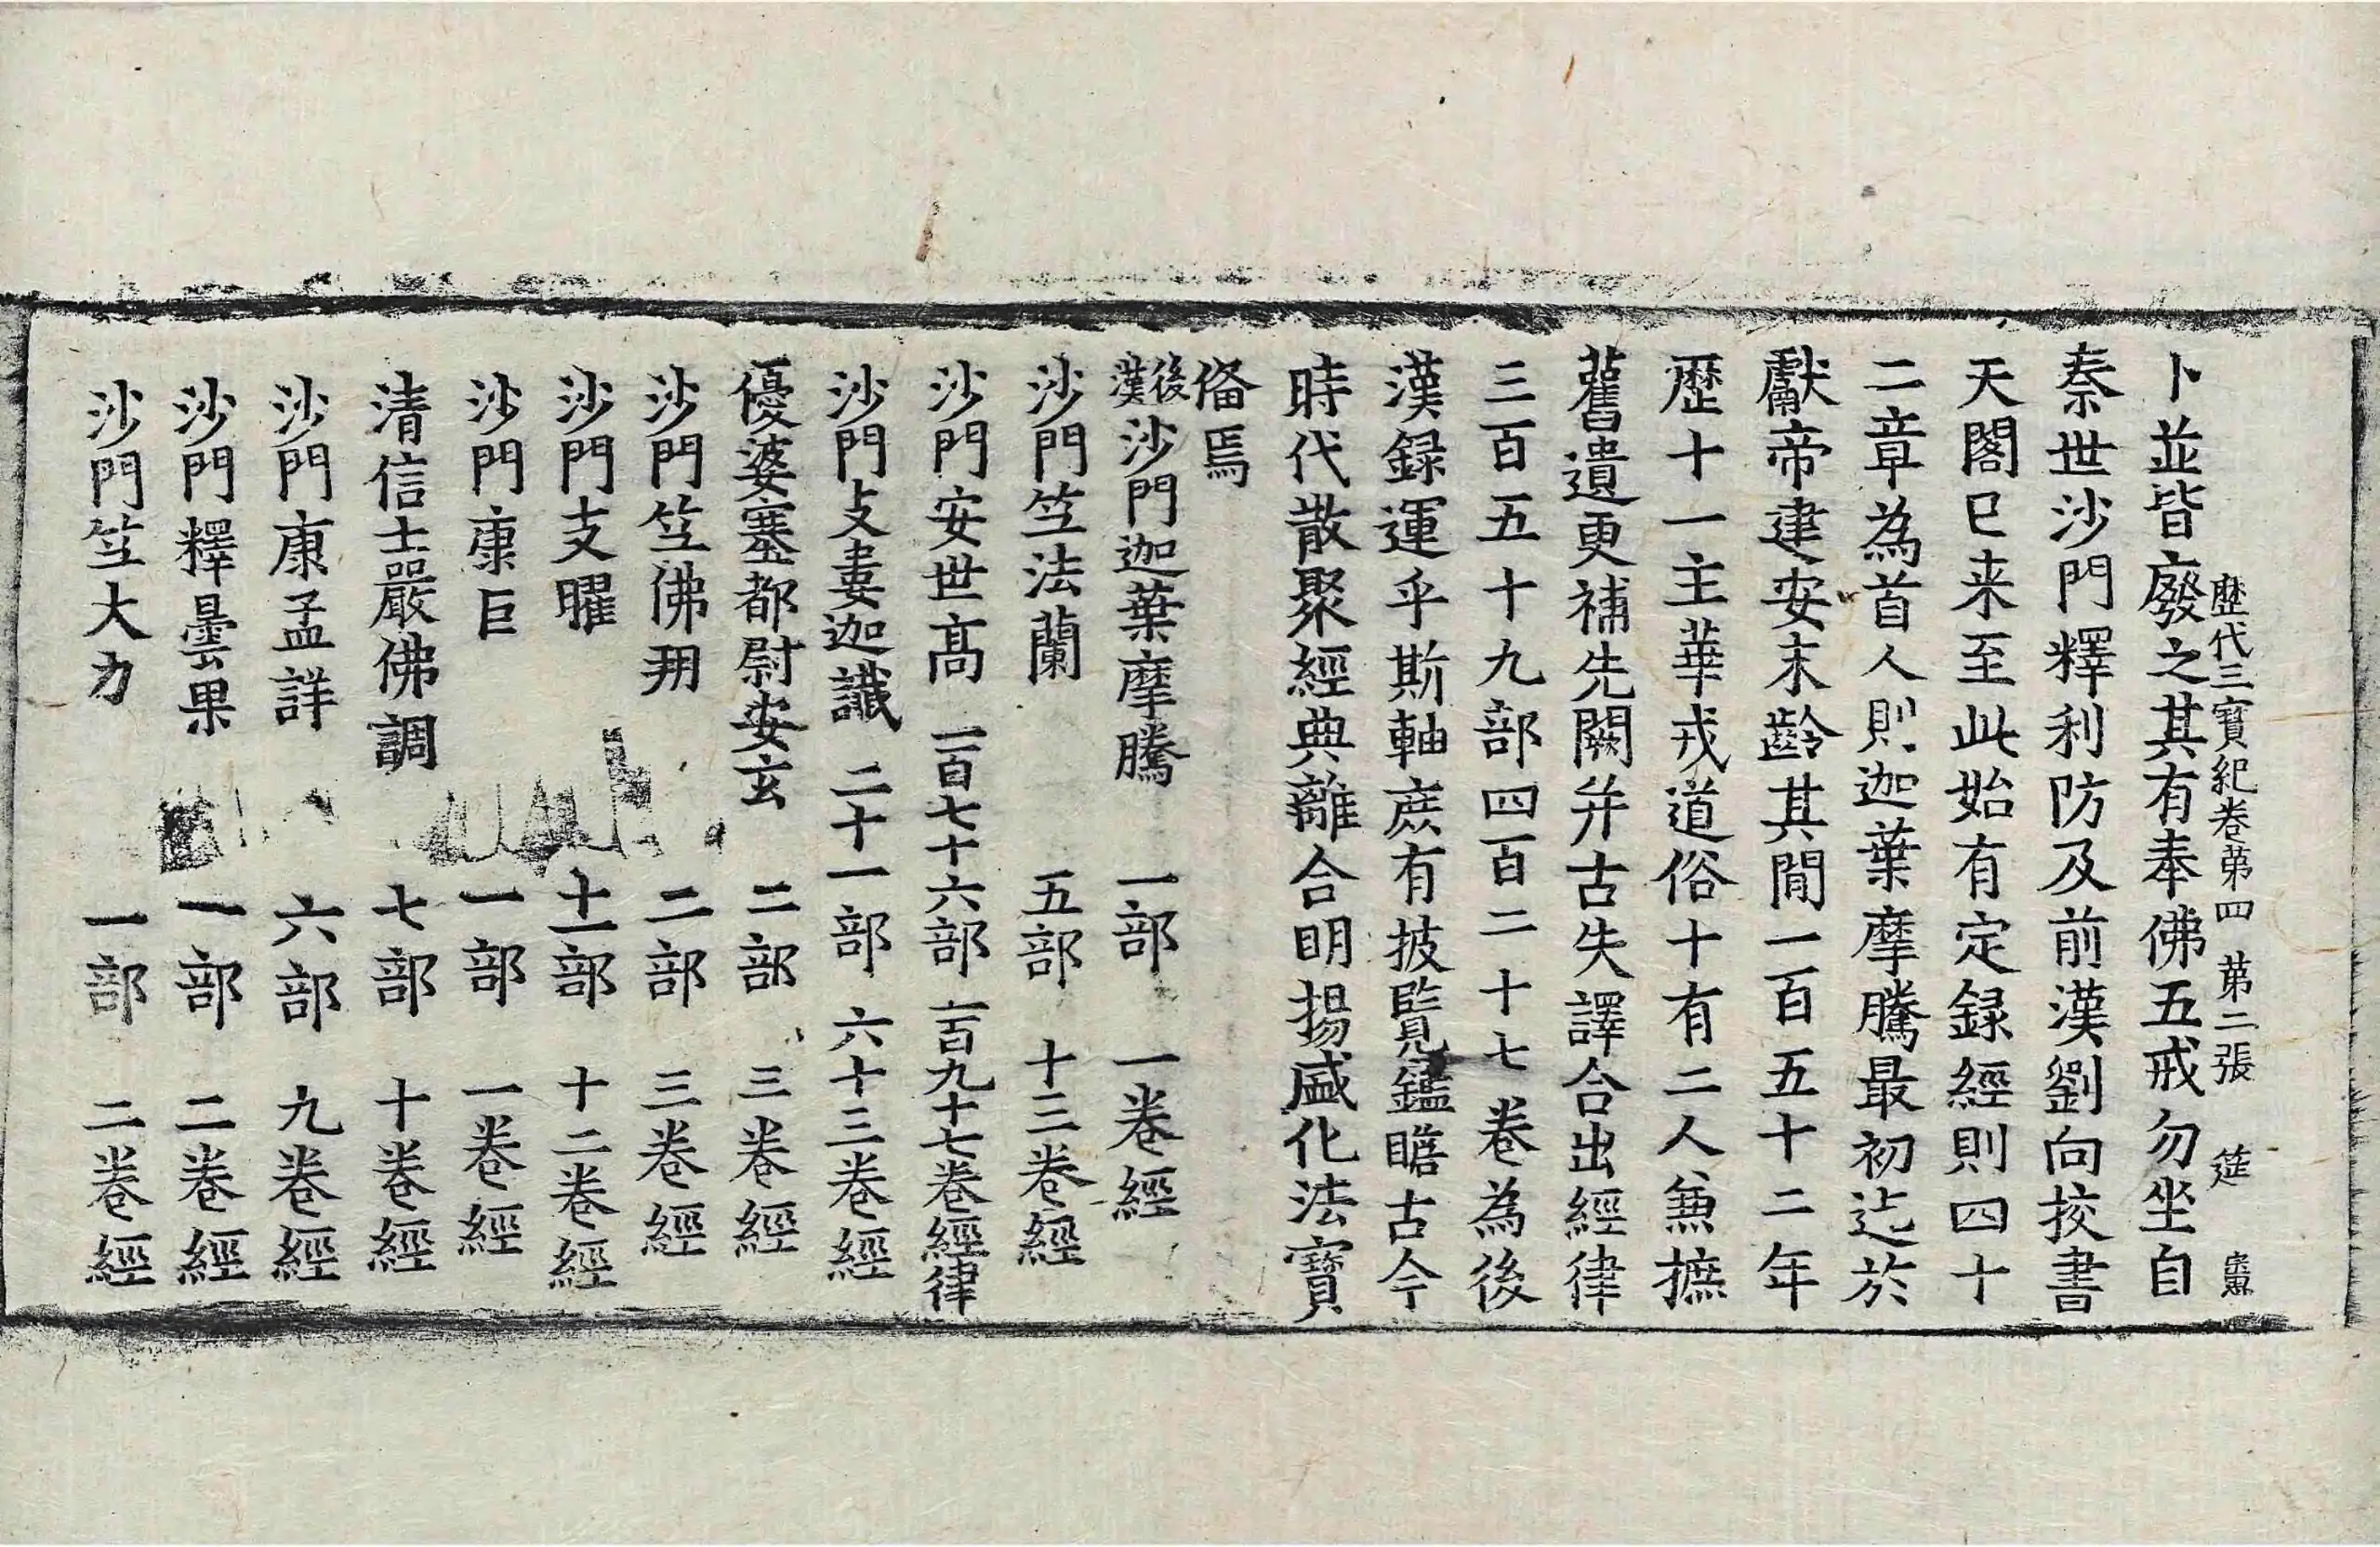 歷代三寶紀卷第四　第二張　筵
卜並皆廢之其有奉佛五戒勿坐自
秦世沙門釋利防及前漢劉向挍書
天閣已来至此始有定録經則四十
二章為首人則迦葉摩騰最初迄於
獻帝建安末齡其閒一百五十二年
歷十一主華戎道俗十有二人兼摭
舊遺更補先闕并古失譯合出經律
三百五十九部四百二十七卷為後
漢録運乎斯軸庶有披覧鑑瞻古今
時代散聚經典離合明揚盛化法寶
俻焉
後漢沙門迦葉摩騰　一部　一卷經
沙門竺法蘭　五部　十三卷經
沙門安世髙　一百七十六部　一百九十七卷經律
沙門支婁迦讖　二十一部　六十三卷經
優婆塞都尉安玄　二部　三卷經
沙門竺佛朔　二部　三卷經
沙門支曜　十一部　十二卷經
沙門康巨　一部　一卷經
清信士嚴佛調　七部　十卷經
沙門康孟詳　六部　九卷經
沙門釋曇果　一部　二卷經
沙門竺大力　一部　二卷經